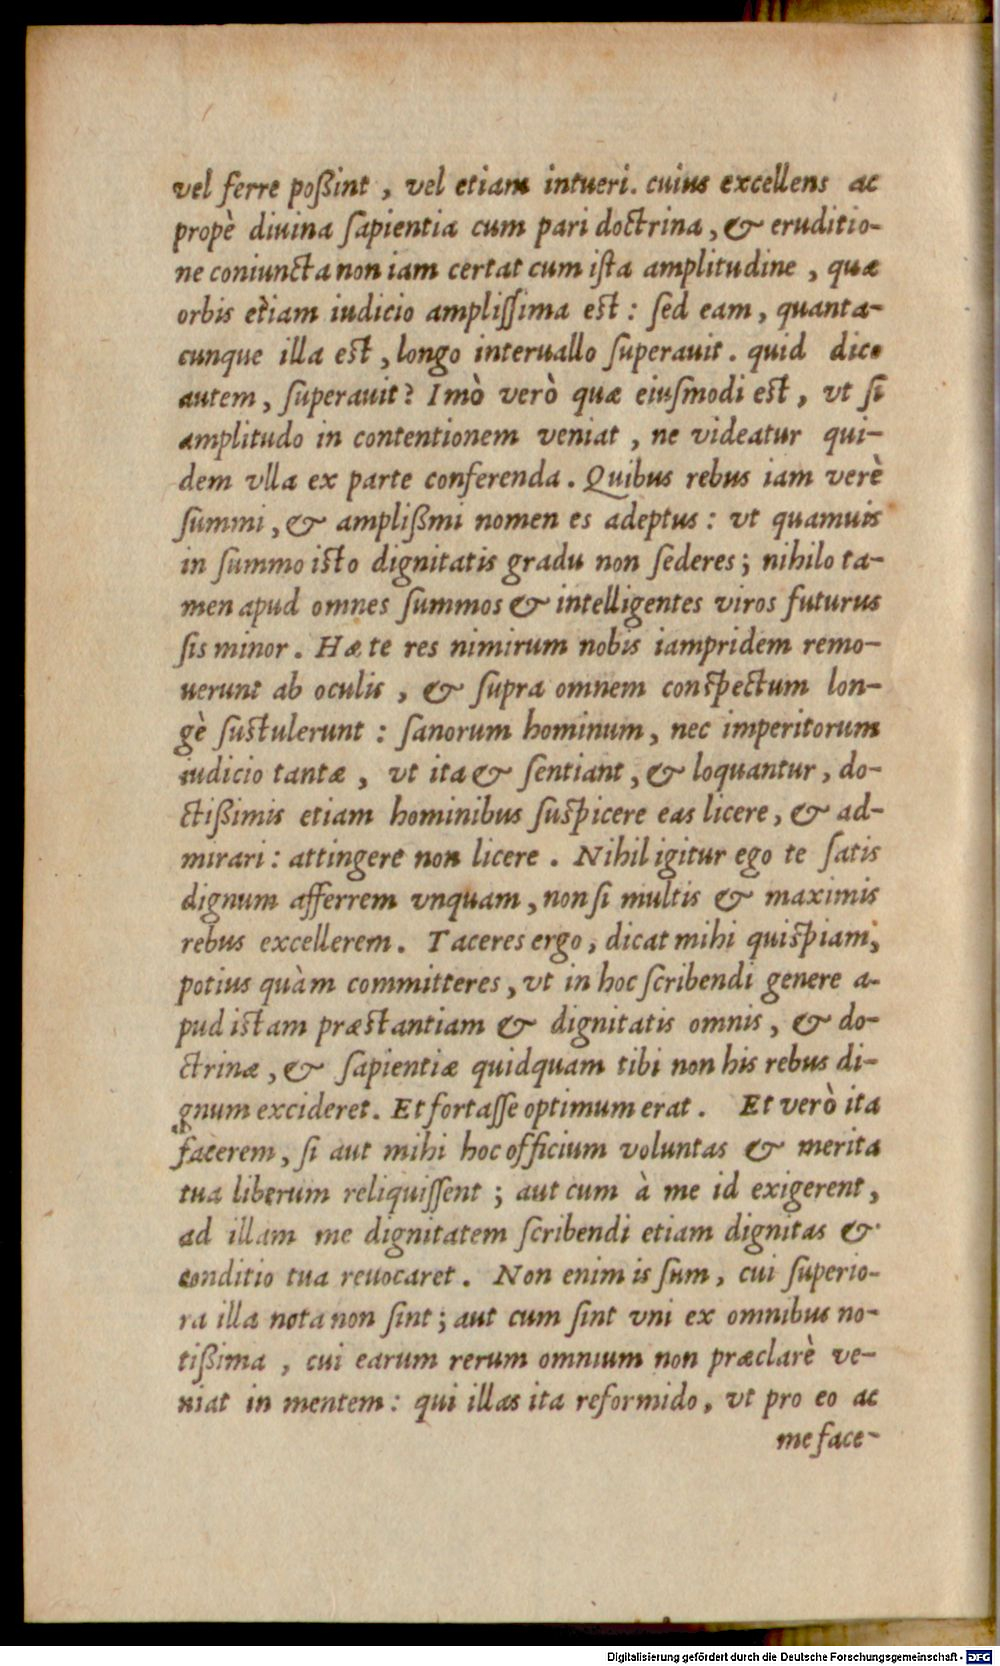 vel ferre poßint, vel etiam intueri. cuius excellens ac
propè diuina ſapientia cum pari doctrina, & eruditio-
ne coniuncta non iam certat cum iſta amplitudine, quæ
orbis etiam iudicio ampliſſima eſt: ſed eam, quanta-
cunque illa eſt, longo interuallo ſuperauit. quid dico
autem, ſuperauit? Imò verò quæ eiuſmodi eſt, vt ſi
amplitudo in contentionem veniat, ne videatur qui-
dem vlla ex parte conferenda. Quibus rebus iam verè
ſummi, & amplißmi nomen es adeptus: vt quamuis
in ſummo iſto dignitatis gradu non ſederes; nihilo ta-
men apud omnes ſummos & intelligentes viros futurus
ſis minor. Hæ te res nimirum nobis iampridem remo-
uerunt ab oculis, & ſupra omnem conſpectum lon-
gè ſuſtulerunt: ſanorum hominum, nec imperitorum
iudicio tantæ, vt ita & ſentiant, & loquantur, do-
ctißimis etiam hominibus ſuſpicere eas licere, & ad-
mirari: attingere non licere. Nihil igitur ego te ſatis
dignum afferrem vnquam, non ſi multis & maximis
rebus excellerem. Taceres ergo, dicat mihi quiſpiam,
potius quàm committeres, vt in hoc ſcribendi genere a-
pud iſtam præſtantiam & dignitatis omnis, & do-
ctrinæ, & ſapientiæ quidquam tibi non his rebus di-
gnum excideret. Et fortaſſe optimum erat. Et verò ita
facerem, ſi aut mihi hoc officium voluntas & merita
tua liberum reliquiſſent; aut cum à me id exigerent,
ad illam me dignitatem ſcribendi etiam dignitas &
conditio tua reuocaret. Non enim is ſum, cui ſuperio-
ra illa nota non ſint; aut cum ſint vni ex omnibus no-
tißima, cui earum rerum omnium non præclarè ve-
niat in mentem: qui illas ita reformido, vt pro eo ac
me face-
Digitalisierung gefördert durch die Deutsche Forschungsgemeinschaft - DFG